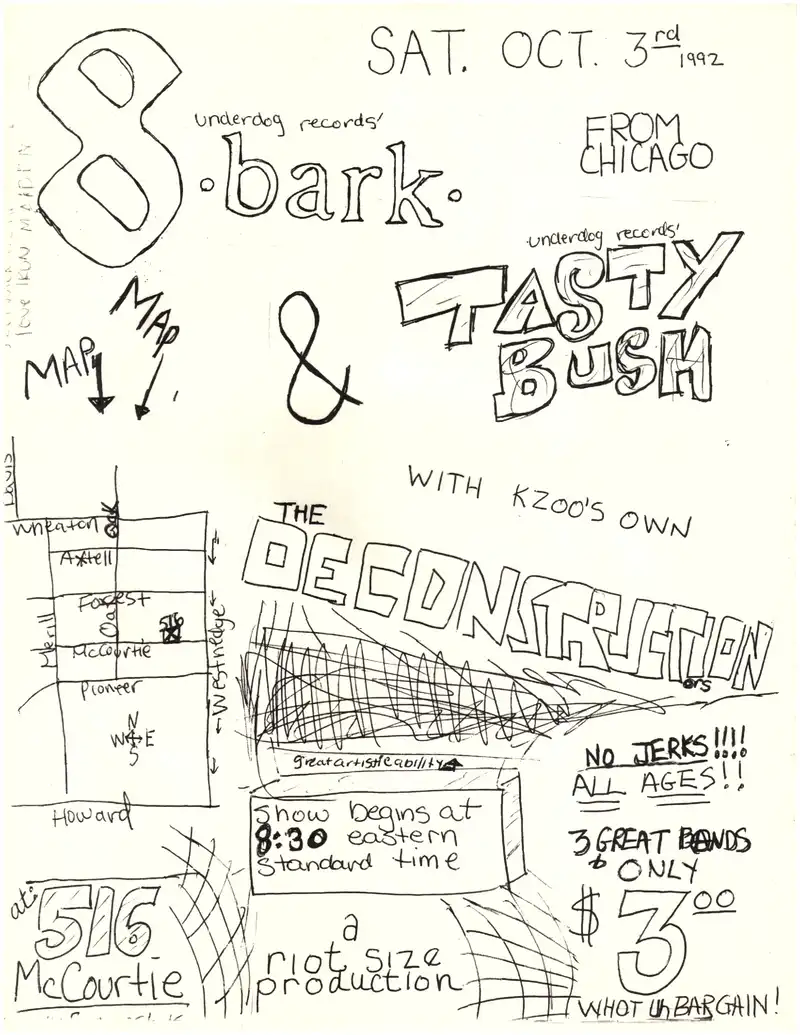 SAT. OCT. 3rd 1992
8
underdog records'
·bark·
FROM
CHICAGO
love IRON MAIDEN
underdog records'
TASTY
BUSH
&
MAP
MAP
WITH KZOO'S OWN
THE
DECONSTRUCTION
ors
Davis
Wheaton
Oak
Axtell
Forest
Oak
516
X
Merill
McCourtie
Westnedge
Pioneer
N
W E
S
Howard
great artistic ability
NO JERKS!!!!
ALL AGES!!
Show begins at
8:30 eastern
standard time
3 GREAT BANDS
ONLY
$3.00
at:
516
McCourtie
a
riot size
production
WHOT Uh BARGAIN!